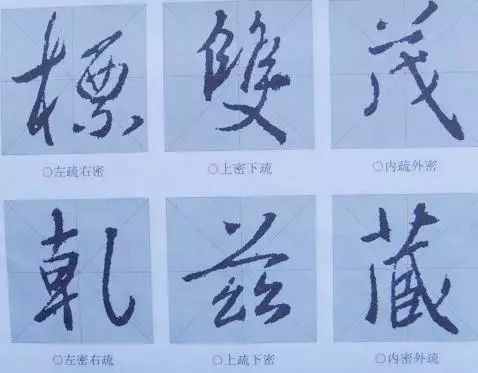 標 雙 茂
○左疏右密 ○上密下疏 ○内疏外密
乾 兹 藏
○左密右疏 ○上疏下密 ○内密外疏